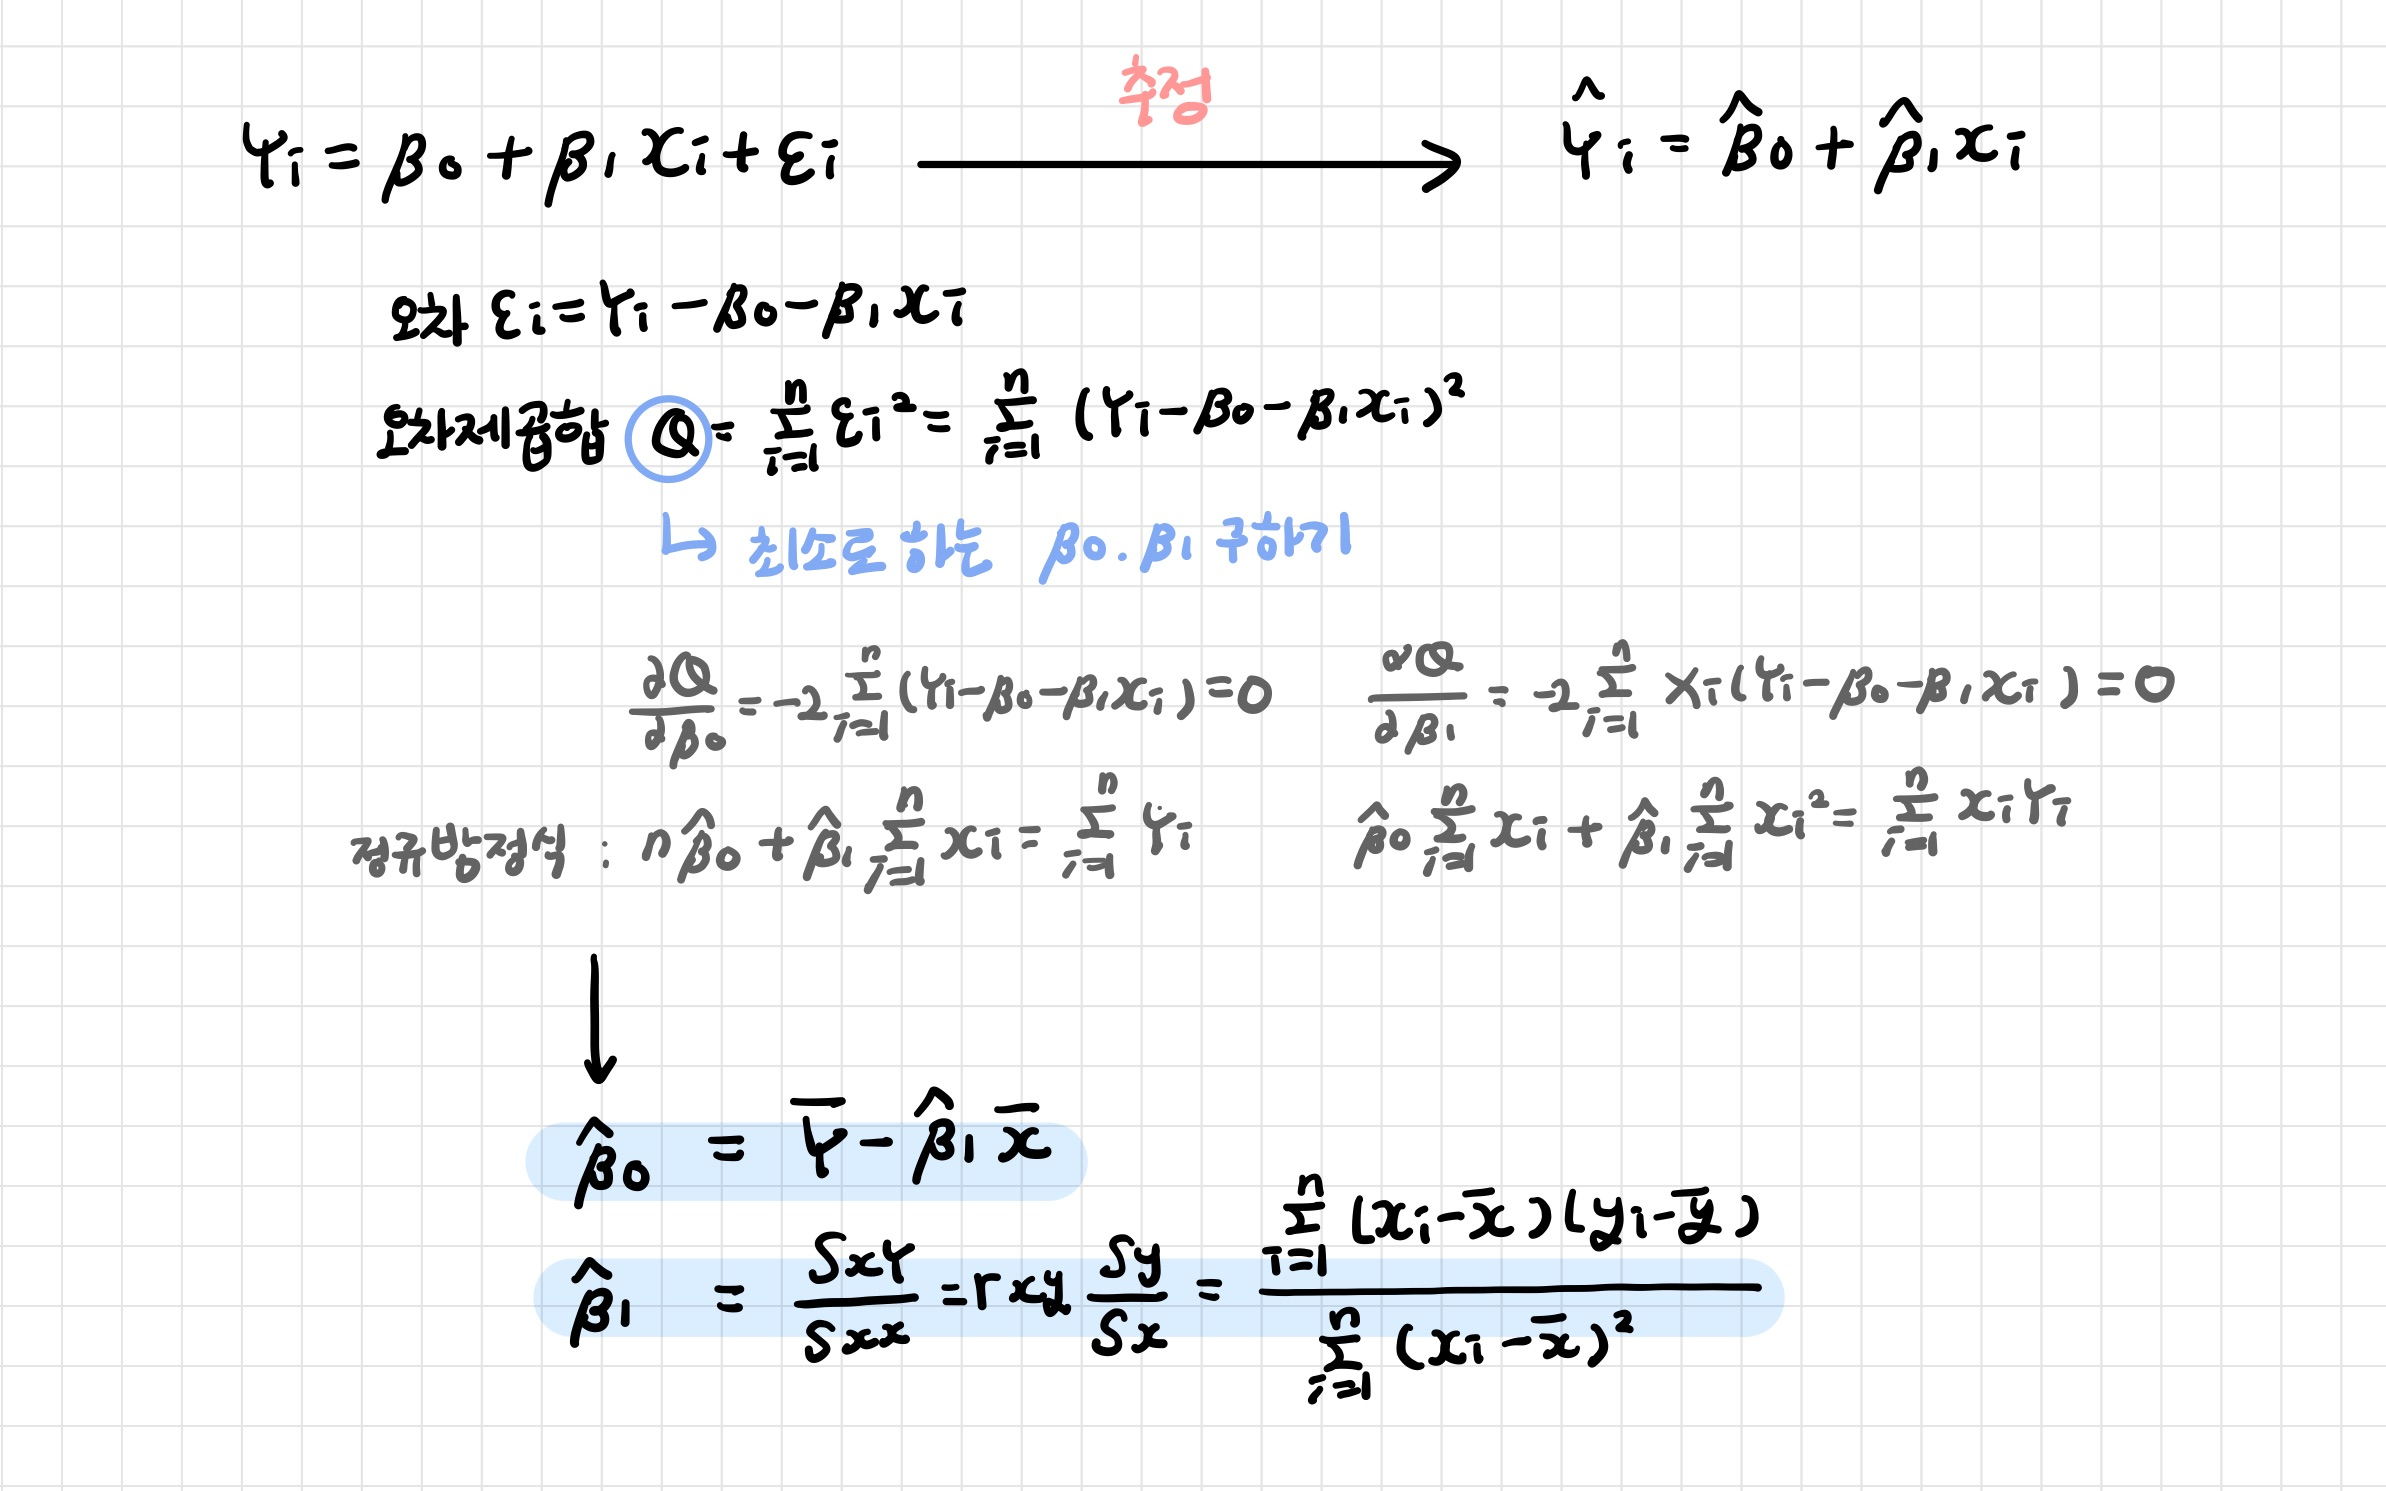 Yi = β0 + β1 xi + εi 추정 → Ŷi = β̂0 + β̂1 xi
오차 εi = Yi − β0 − β1 xi
오차제곱합 Q = Σ_{i=1}^{n} εi² = Σ_{i=1}^{n} (Yi − β0 − β1 xi)²
↳ 최소로 하는 β0. β1 구하기
∂Q/∂β0 = −2 Σ_{i=1}^{n} (Yi − β0 − β1 xi) = 0    ∂Q/∂β1 = −2 Σ_{i=1}^{n} xi (Yi − β0 − β1 xi) = 0
정규방정식 : nβ̂0 + β̂1 Σ_{i=1}^{n} xi = Σ_{i=1}^{n} Yi    β̂0 Σ_{i=1}^{n} xi + β̂1 Σ_{i=1}^{n} xi² = Σ_{i=1}^{n} xi Yi
↓
β̂0 = Ȳ − β̂1 x̄
β̂1 = SxY/Sxx = rxy Sy/Sx = Σ_{i=1}^{n} (xi − x̄)(yi − ȳ) / Σ_{i=1}^{n} (xi − x̄)²